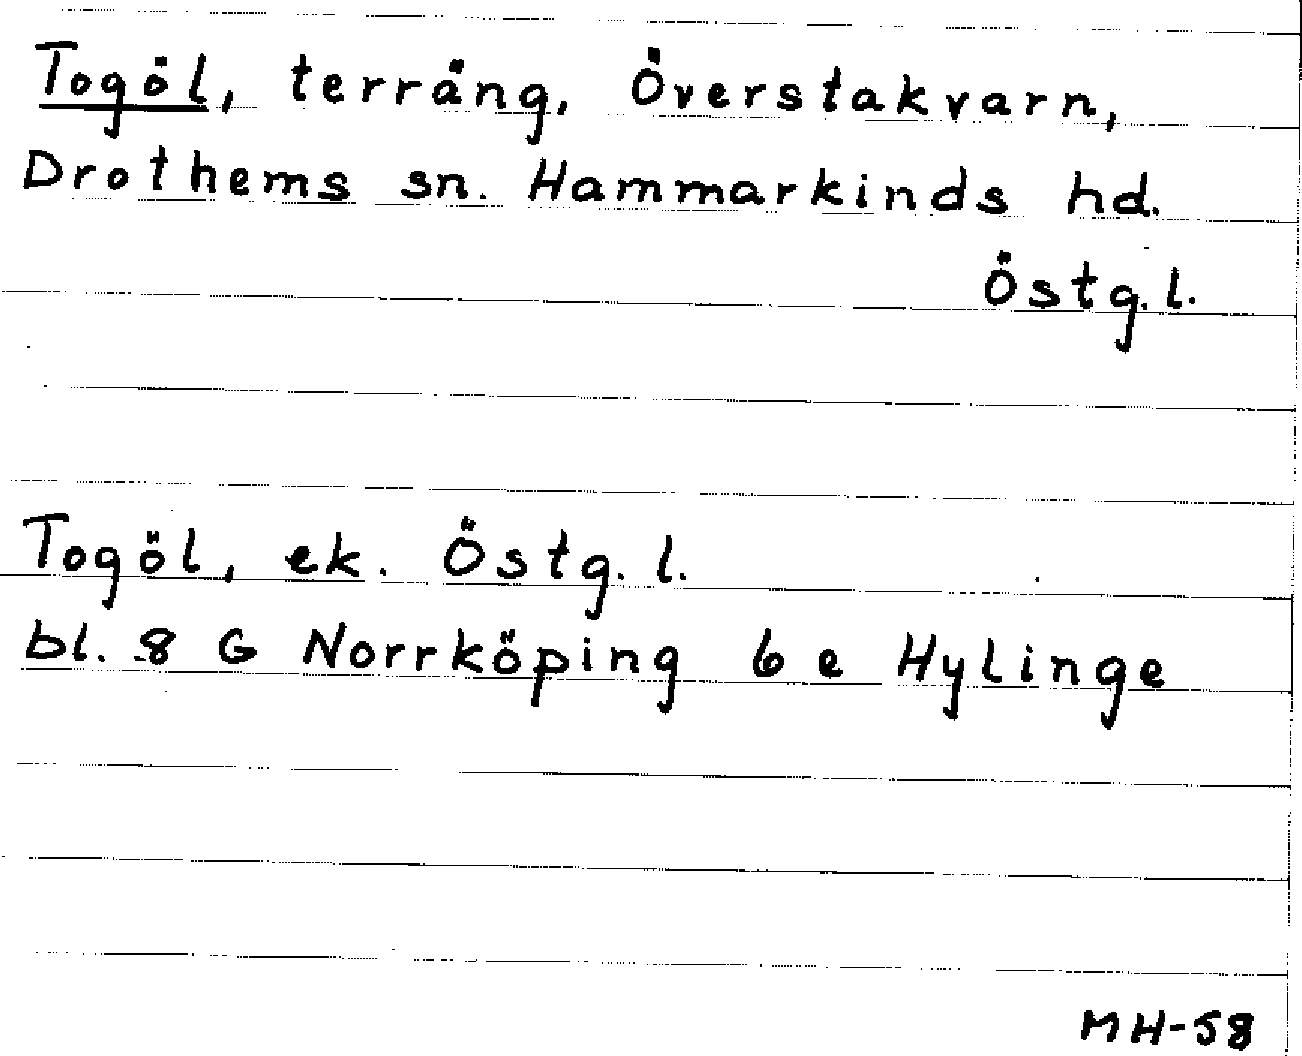 Togöl, terräng, Överstakvarn,
Drothems sn. Hammarkinds hd.
Östg. l.
Togöl, ek. Östg. l.
bl. 8 G Norrköping 6 e Hylinge
MH-58